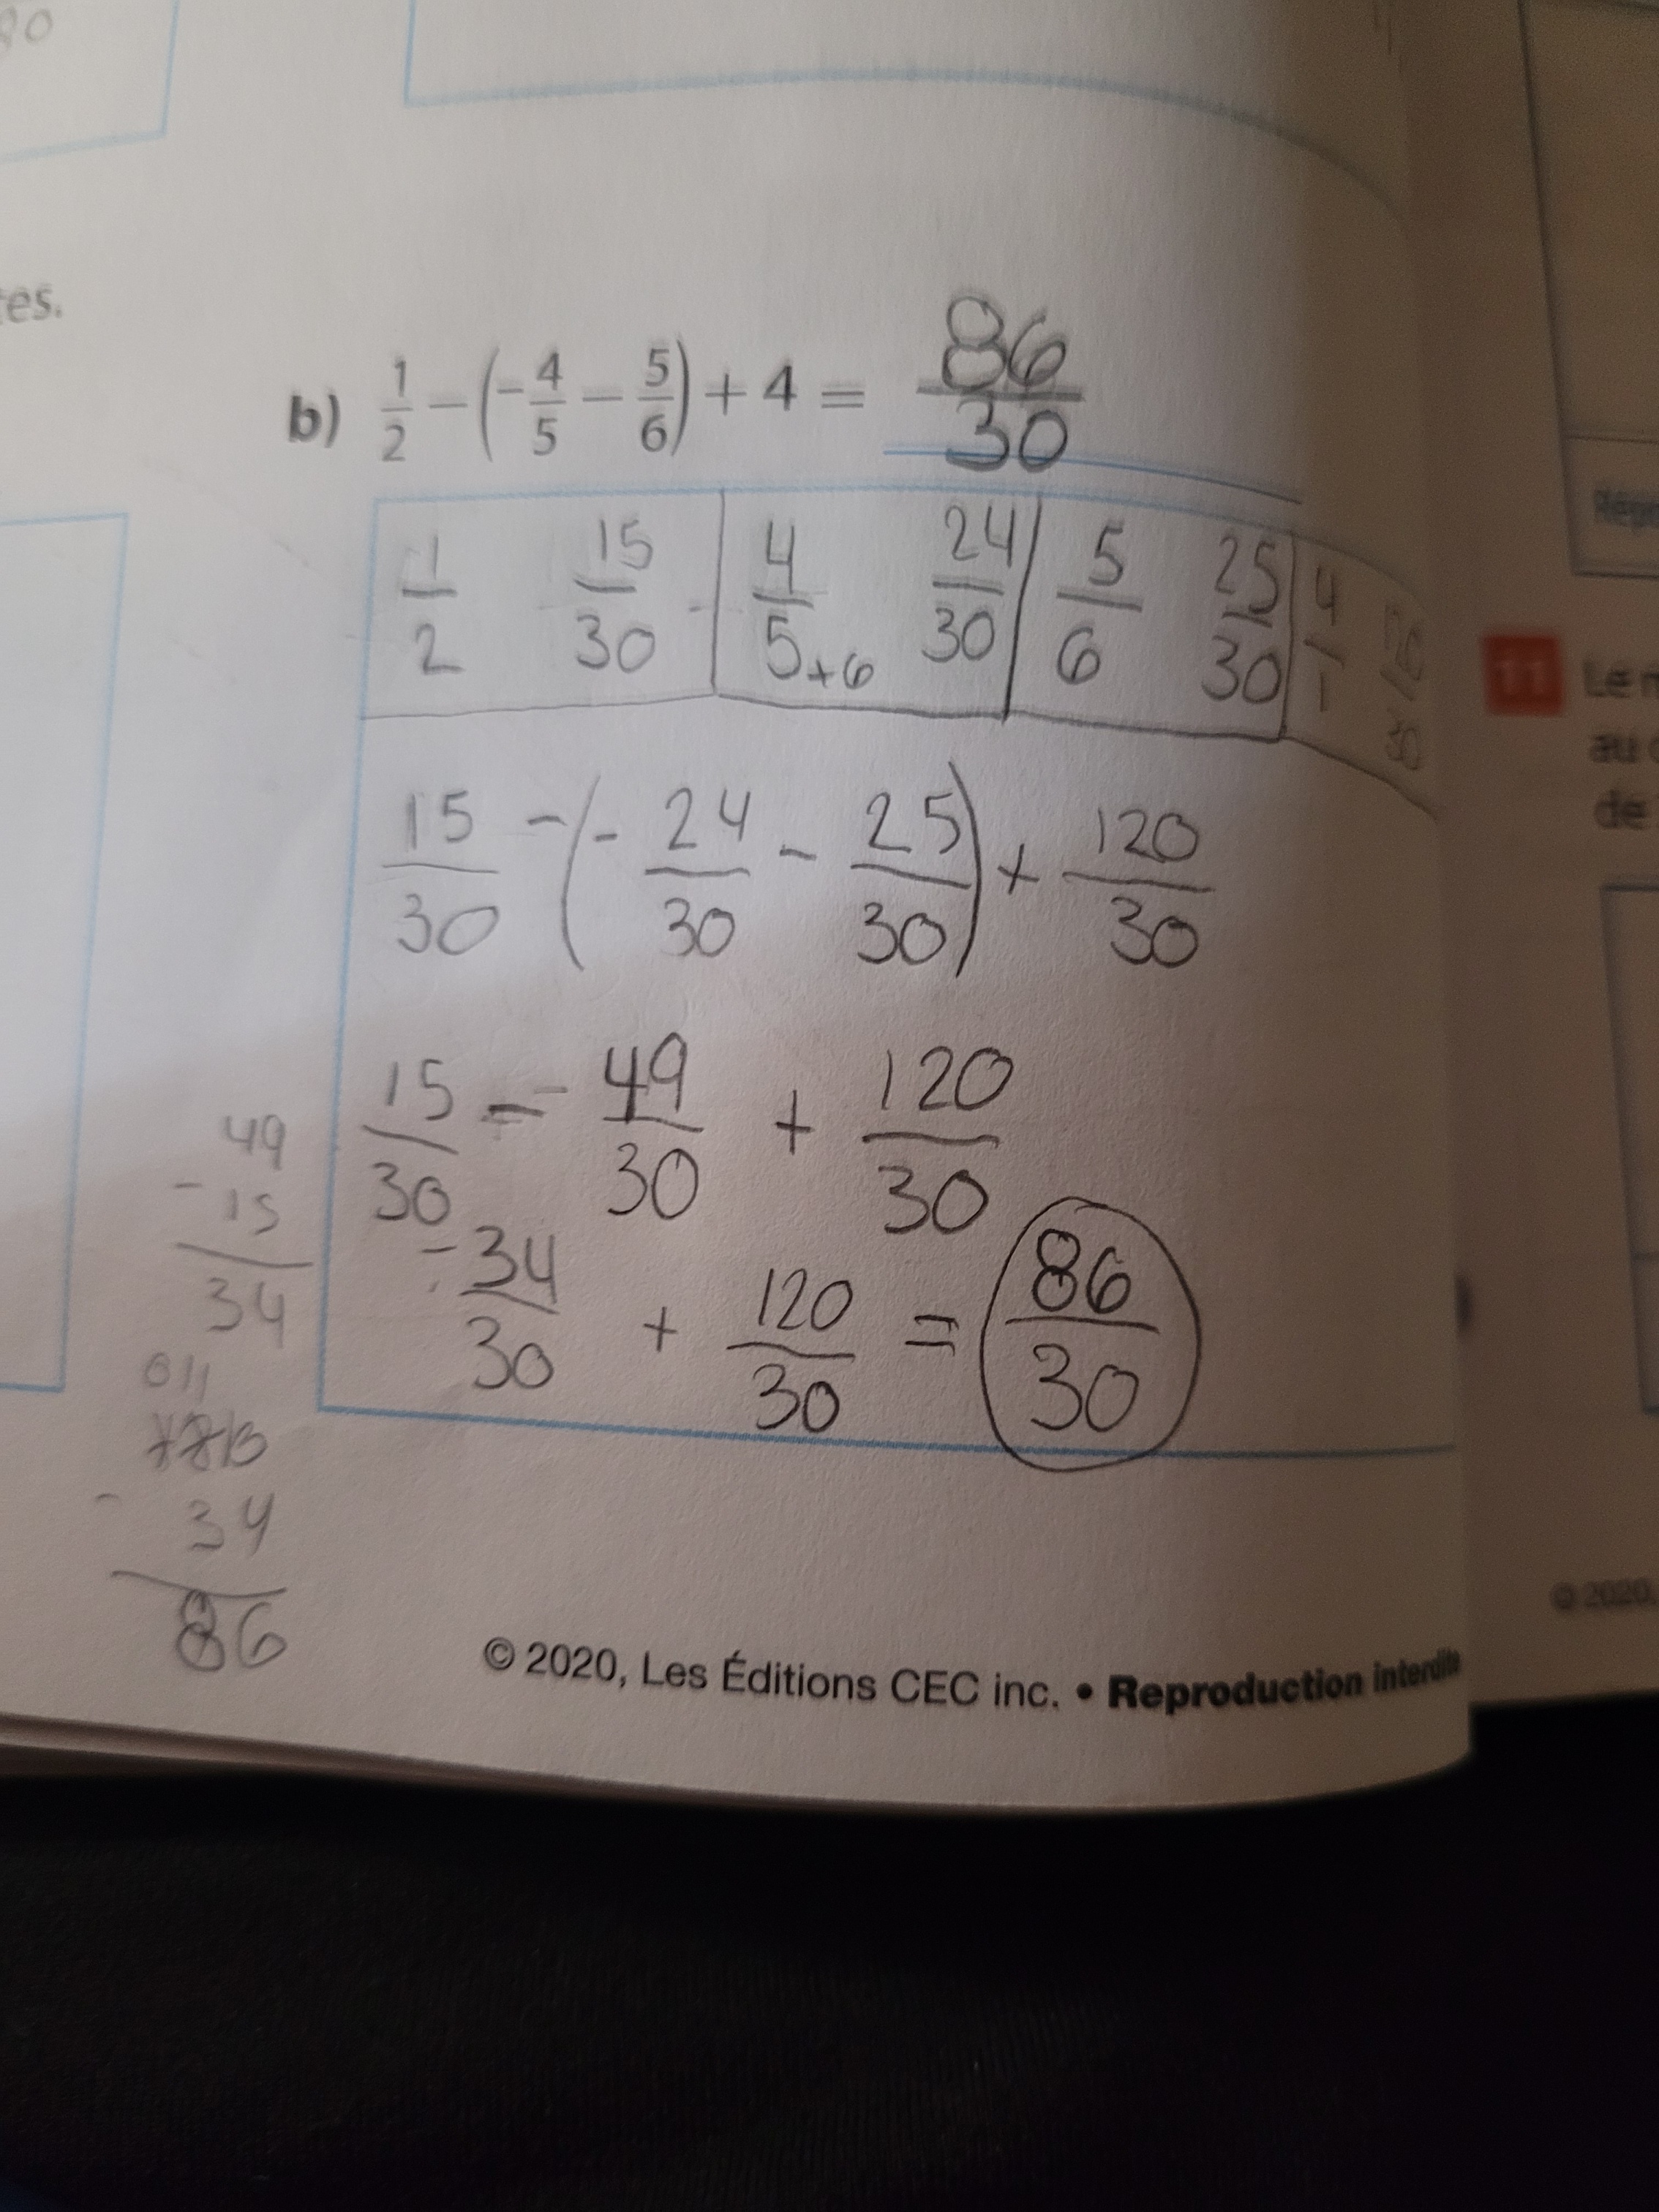 80
tes.
b) 1/2 - (-4/5 - 5/6) + 4 = 86/30
1/2 15/30 4/5+6 24/30 5/6 25/30 4/1 120/30
15/30 - (- 24/30 - 25/30) + 120/30
15/30 - - 49/30 + 120/30
- 34/30 + 120/30 = 86/30
49
- 15
34
011
- 34
86
© 2020, Les Éditions CEC inc. • Reproduction interdite
11 Le
au
de
© 2020,